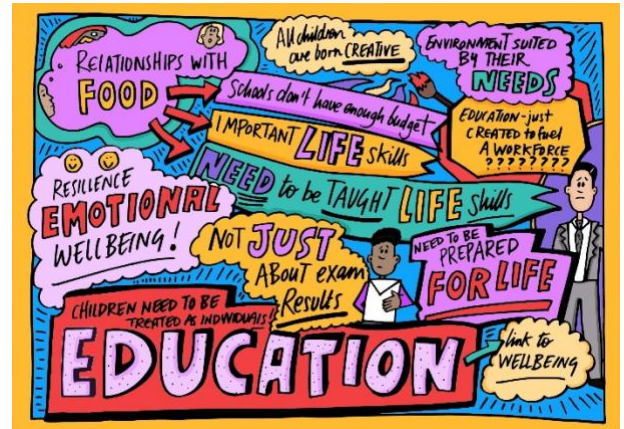 RELATIONSHIPS WITH
FOOD
All children
are born CREATIVE
ENVIRONMENT SUITED
BY THEIR
NEEDS
Schools don't have enough budget
IMPORTANT LIFE skills
NEED to be TAUGHT LIFE skills
EDUCATION-just
CREATED to fuel
A WORKFORCE
????????
RESILIENCE
EMOTIONAL
WELLBEING!
NOT JUST
ABout exam
Results
NEED TO BE
PREPARED
FOR LIFE
CHILDREN NEED TO BE
TREATED AS INDIVIDUALS!
EDUCATION
link to
WELLBEING